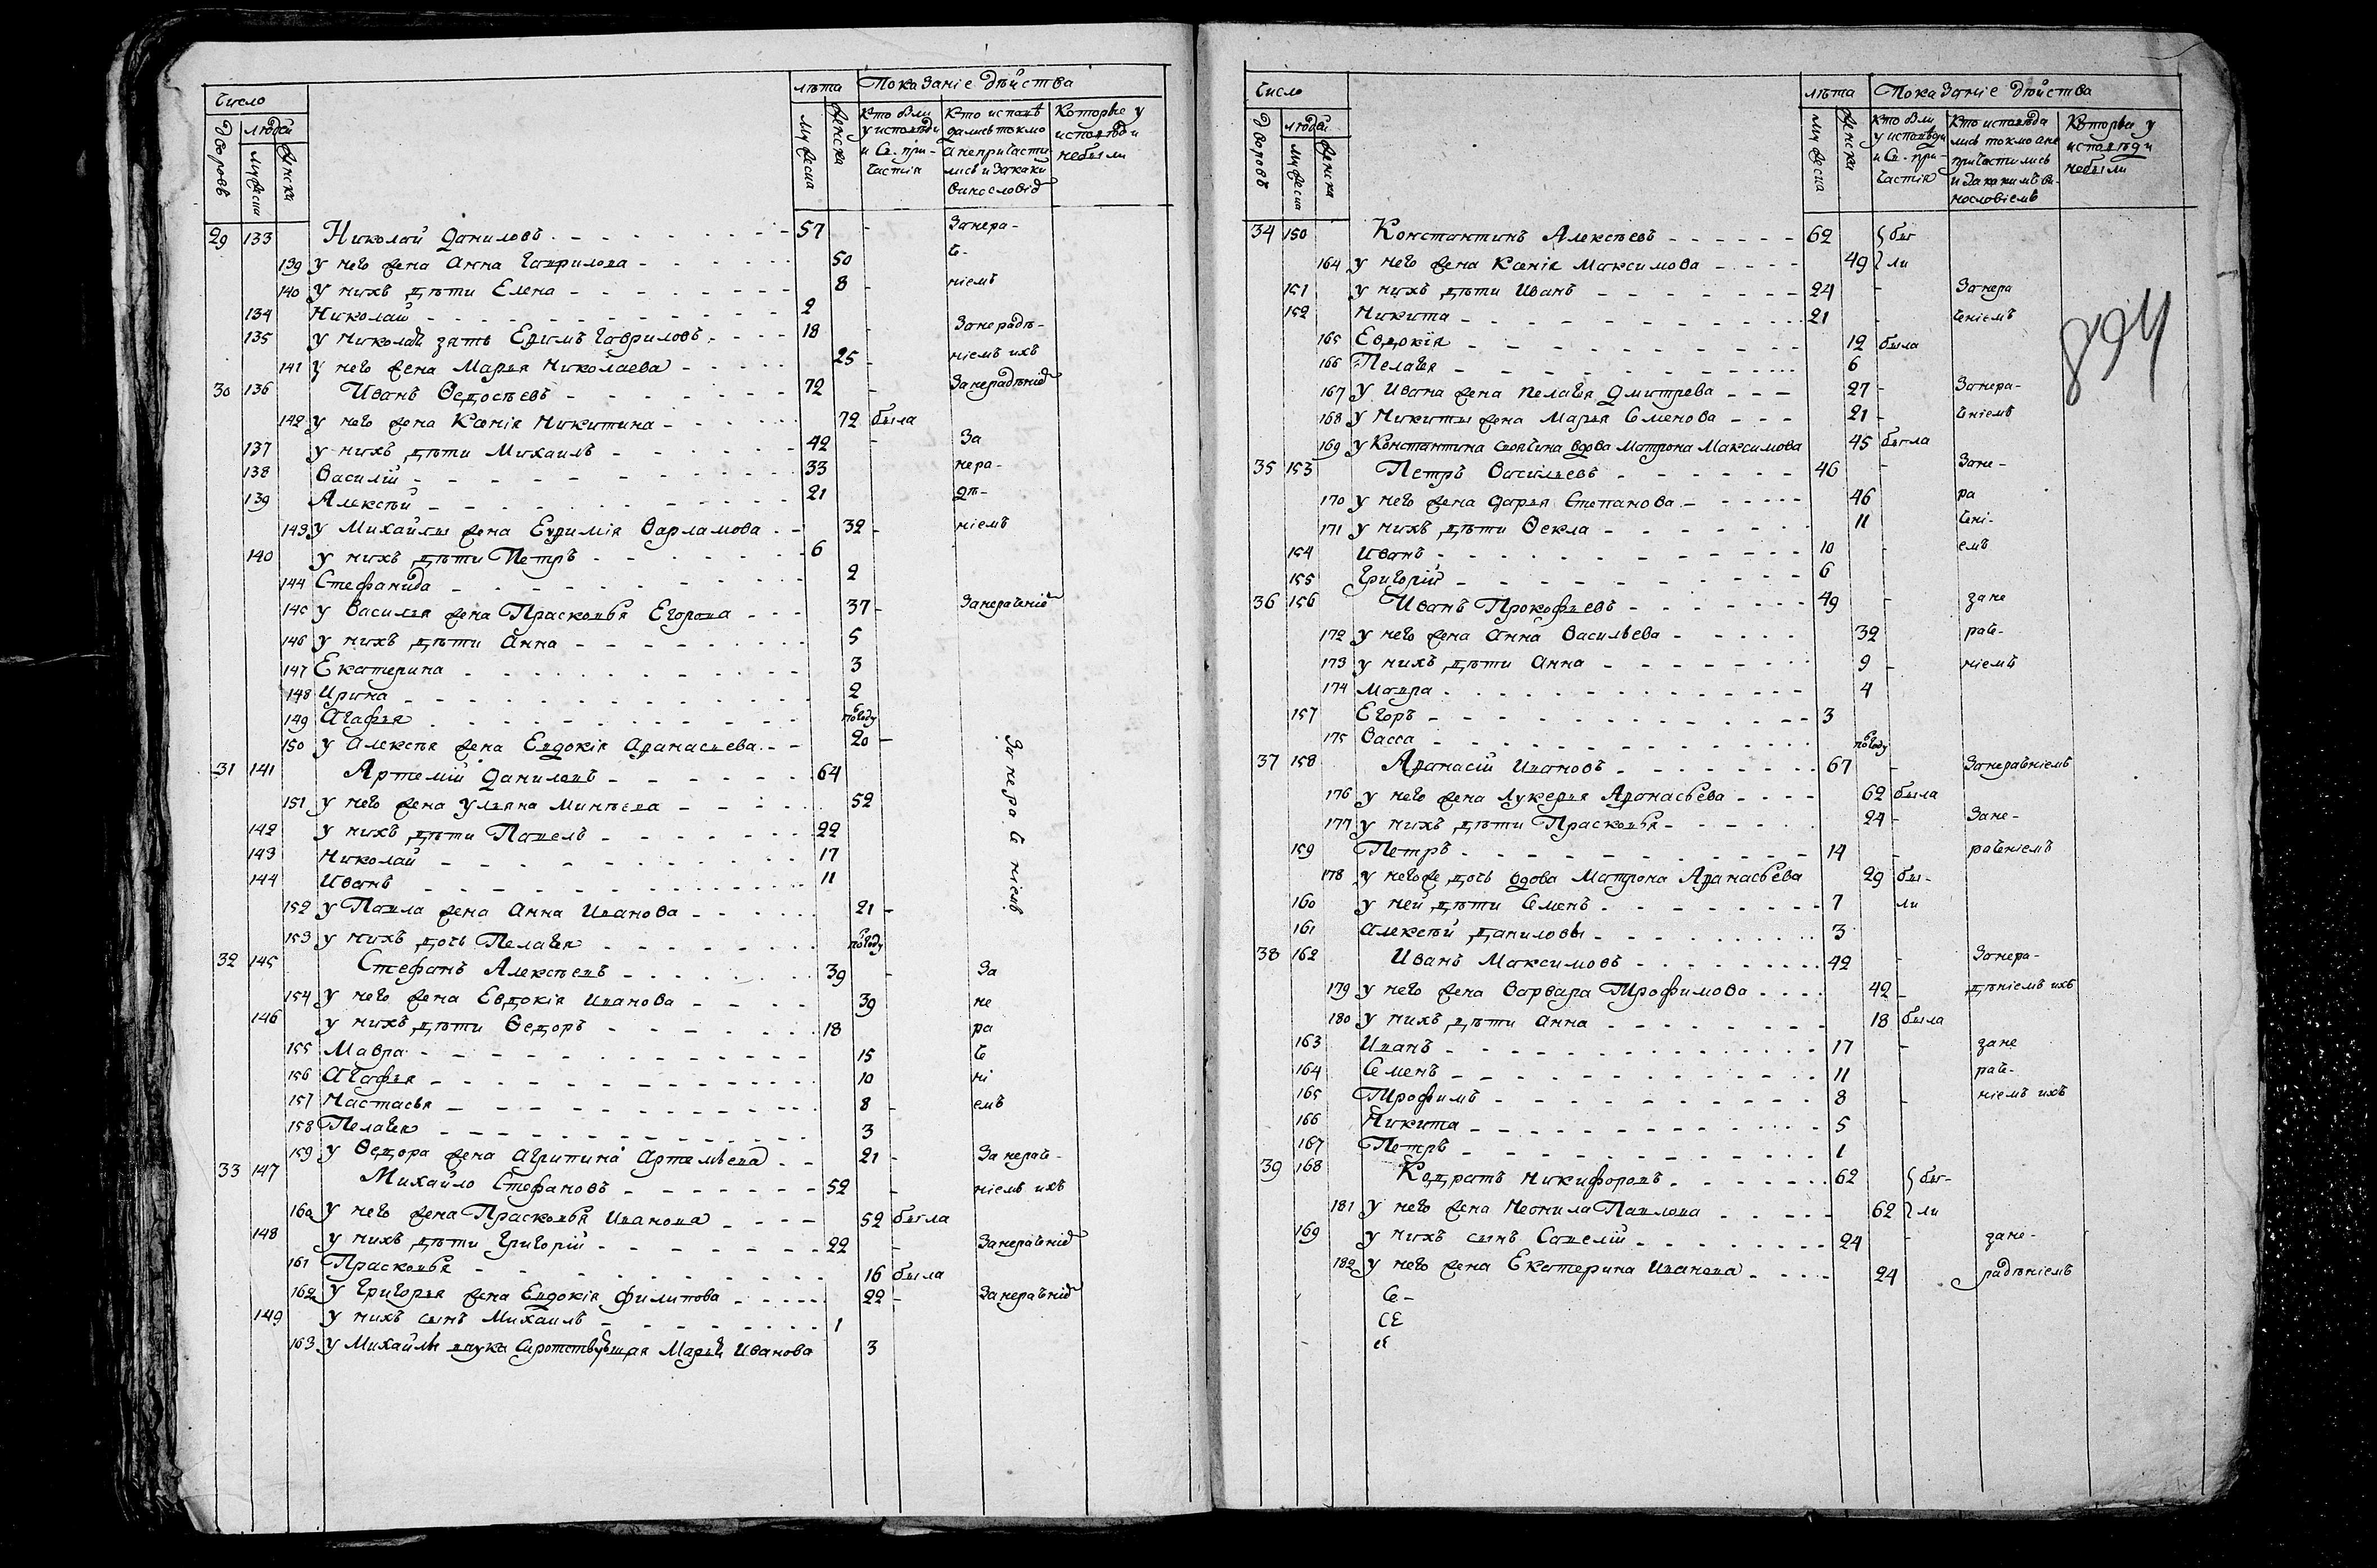 Число
лѣта Показаніе дѣйства
дворовъ
людей
мужеска
женска
мужеска
женска
Кто были у исповѣди и Св. при-частія
Кто исповѣ дались токмо а непричасти лись и за каки винословіе
Которые у исповѣди небыли
29 133 Николай Даниловъ 57 - Занера-
139 у него жена Анна Гаврилова 50 Ч-
140 у нихъ дѣти Елена 8 - ніемъ
134 Николай 2
135 у Николая зять Ефимъ Гавриловъ 18 - Занерадѣ-
141 у него жена Марья Николаева 25 - ніемъ ихъ
30 136 Иванъ Ѳедосѣевъ 72 - Занерадѣніе
142 у него жена Ксенія Никитина 72 была
137 у нихъ дѣти Михаилъ 42 - За
138 Василій 33 нера-
139 Алексѣй 21 дѣ-
143 у Михайлы жена Ефимія Варламова 32 - ніемъ
140 у нихъ дѣти Петръ 6
144 Стефанида 2
145 у Василья жена Прасковья Егорова 37 - Занераченіе
146 у нихъ дѣти Анна 5
147 Екатерина 3
148 Ирина 2
149 Агафья по году
150 у Алексѣя жена Евдокія Афанасьева 20 -
31 141 Артемій Даниловъ 64
За нера че ніемъ
151 у него жена Ульяна Минѣева 52
142 у нихъ дѣти Павелъ 22
143 Николай 17
144 Иванъ 11
152 у Павла жена Анна Иванова 21 -
153 у нихъ дочь Пелагея по году
32 145 Стефанъ Алексѣевъ 39 - За
154 у него жена Евдокія Иванова 39 не
146 у нихъ дѣти Ѳедоръ 18 ра
155 Мавра 15 Че
156 Агафья 10 ні
157 Настасья 8 - емъ
158 Пелагея 3
159 у Ѳедора жена Агрипина Артемьева 21 - За нерач-
33 147 Михайло Стефановъ 52 - ніемъ ихъ
160 у него жена Прасковья Иванова 52 была
148 у нихъ дѣти Григорій 22 - Занераченіе
161 Прасковья 16 была
162 у Григорья жена Евдокія Филипова 22 - Занераченіе
149 у нихъ сынъ Михаилъ 1
163 у Михайлы внука Сиротствующая Марья Иванова 3
Число
лѣта Показаніе дѣйства
дворовъ
людей
мужеска
женска
мужеска
женска
Кто были у исповѣди и Св. при-частія
Кто исповѣда лись токмо а не причастились и за какимъ ви-нословіемъ
Которыи у исповѣди небыли
34 150 Константинъ Алексѣевъ 62 бы
164 у него жена Ксенія Максимова 49 ли
151 у нихъ дѣти Иванъ 24 - Занера
152 Никита 21 - ченіемъ
894
165 Евдокія 12 была
166 Пелагея 6
167 у Ивана жена Пелагея Дмитрева 27 - Занера-
168 у Никиты жена Марья Семенова 21 - ченіемъ
169 у Константина своячина вдова Матрона Максимова 45 была
35 153 Петръ Васильевъ 46 - Зане-
170 у него жена Дарья Степанова 46 ра
171 у нихъ дѣти Ѳекла 11 чені-
154 Иванъ 10 - емъ
155 Григорій 6
36 156 Иванъ Прокофьевъ 49 - зане
172 у него жена Анна Васильева 32 рач-
173 у нихъ дѣти Анна 9 - ніемъ
174 Мавра 4
157 Егоръ 3
175 Васса по году
37 158 Афанасій Ивановъ 67 - Занераченіемъ
176 у него жена Лукерья Афанасьева 62 была
177 у нихъ дѣти Прасковья 24 - Зане-
159 Петръ 14 - раченіемъ
178 у него же дочь вдова Матрона Афанасьева 29 бы-
160 у ней дѣти Семенъ 7 ли
161 Алексѣй Даниловы 3
38 162 Иванъ Максимовъ 42 - Занера-
179 у него жена Варвара Трофимова 42 - дѣніемъ ихъ
180 у нихъ дѣти Анна 18 была
163 Иванъ 17 - зане
164 Семенъ 11 раче-
165 Трофимъ 8 - ніемъ ихъ
166 Никита 5
167 Петръ 1
39 168 Кодратъ Никифоровъ 62 бы-
181 у него жена Неонила Павлова 62 ли
169 у нихъ сынъ Савелій 24 - зане-
182 у него жена Екатерина Иванова 24 радѣніемъ